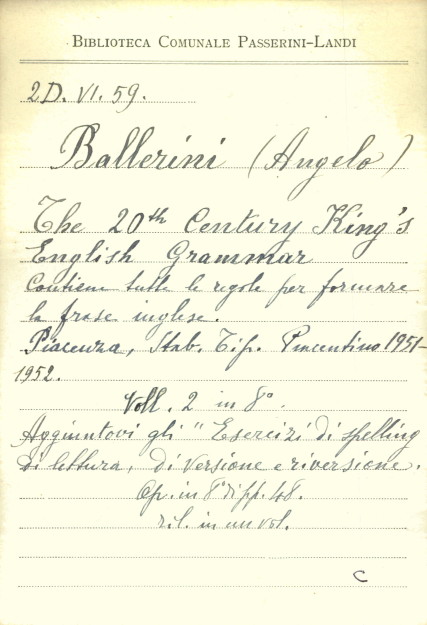 BIBLIOTECA COMUNALE PASSERINI-LANDI
2D. VI. 59.
Ballerini (Angelo)
The 20th Century King's
English Grammar
Contiene tutte le regole per formare
la frase inglese.
Piacenza, Stab. Tip. Piacentino 1951-
1952.
Voll. 2 in 8°
Aggiuntovi gli "Esercizi di spelling
di lettura, di versione e riversione.
Op. in 8° di pp. 48.
ril. in un vol.
C